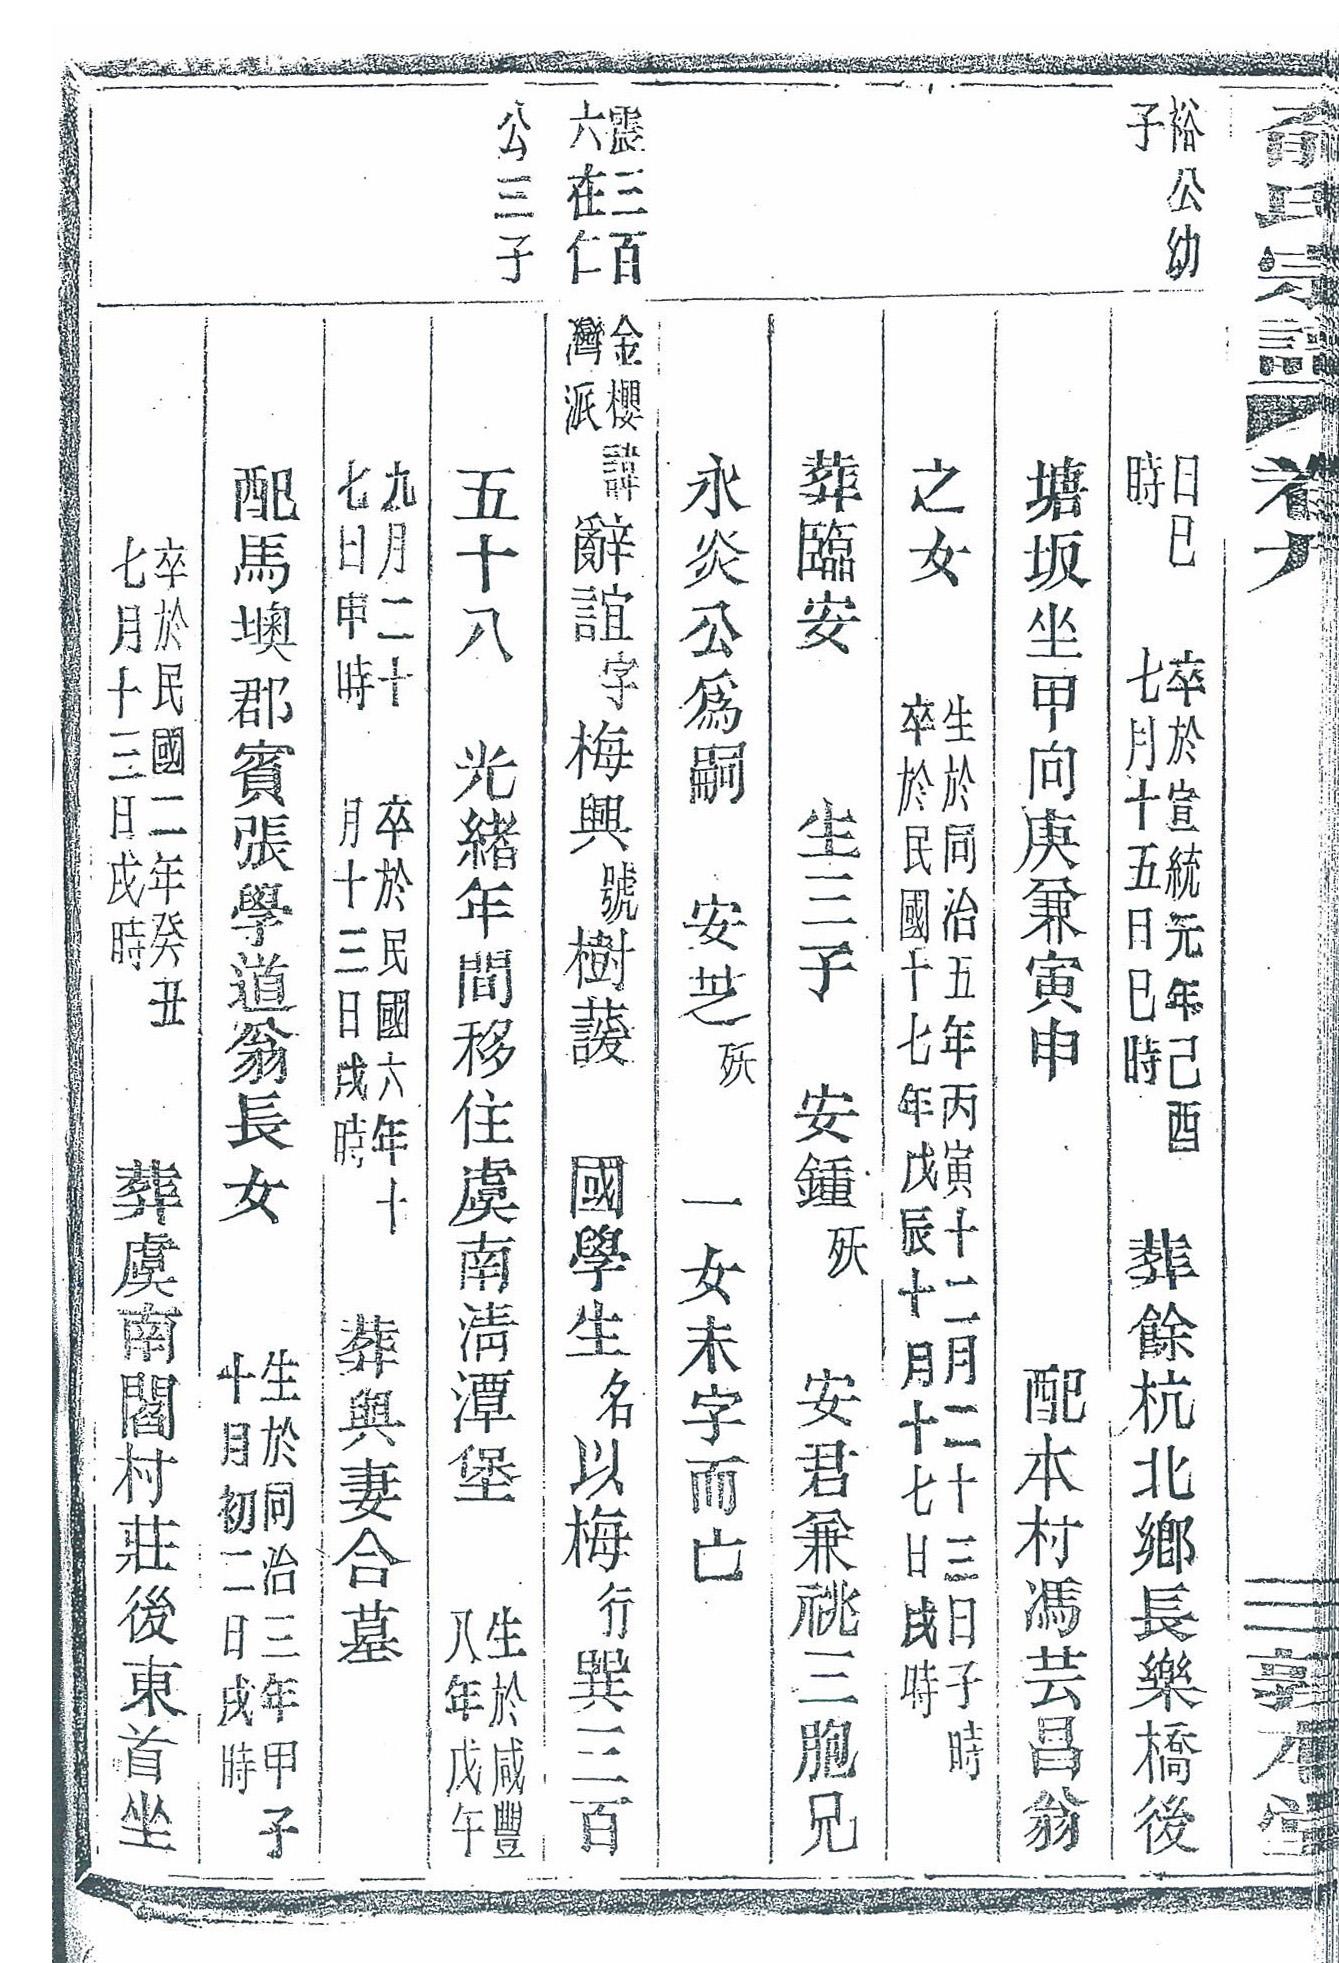 氏宗譜 卷六
裕公幼
子
日巳 卒於宣統元年己酉
時 七月十五日巳時 葬餘杭北鄉長樂橋後
塘坂坐甲向庚兼寅申 配本村馮芸昌翁
之女 生於同治五年丙寅十二月二十三日子時
卒於民國十七年戊辰十月十七日戌時
葬臨安 生三子 安鍾殀 安君兼祧三胞兄
永炎公為嗣 安芝殀 一女未字而亡
震三百
六在仁
公三子
金櫻
灣派 諱辭誼字梅興號樹 國學生名以梅行巽三百
五十八 光緒年間移住虞南清潭堡 生於咸豐
八年戊午
九月二十 卒於民國六年十
七日申時 月十三日戌時 葬與妻合墓
配馬墺郡賓張學道翁長女 生於同治三年甲子
十月初二日戌時
卒於民國二年癸丑
七月十三日戌時 葬虞南閣村莊後東首坐